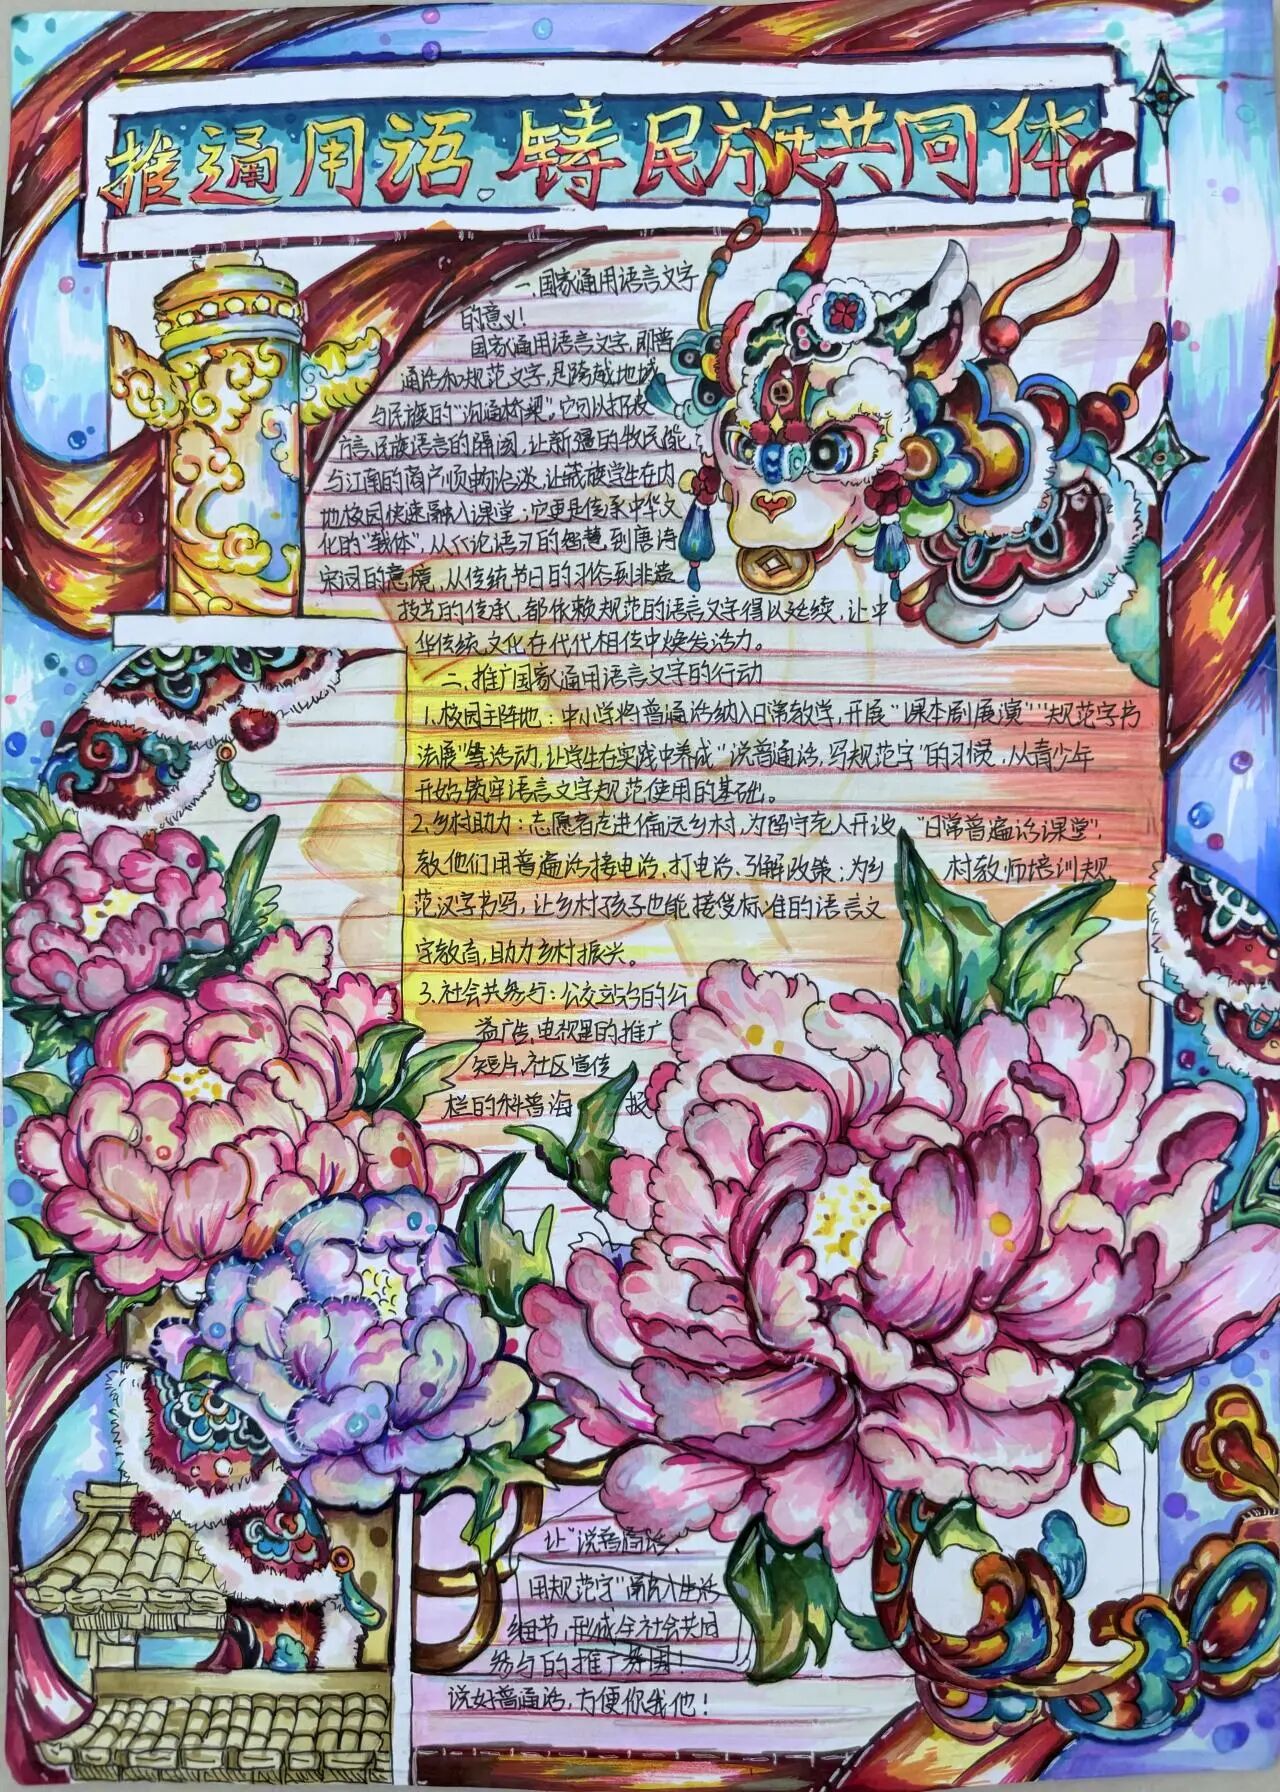 推通用语.铸民族共同体
一、国家通用语言文字
的意义!
国家通用语言文字,即普
通话和规范文字,是跨越地域
与民族的"沟通桥梁",它可以打破
方言、民族语言的隔阂,让新疆的牧民能
与江南的商户顺畅洽谈,让藏族学生在内
地校园快速融入课堂;它更是传承中华文
化的"载体",从《论语》的智慧,到唐诗
宋词的意境,从传统节日的习俗到非遗
技艺的传承,都依赖规范的语言文字得以延续,让中
华传统文化在代代相传中焕发活力。
二、推广国家通用语言文字的行动
1.校园主阵地:中小学将普通话纳入日常教学,开展"课本剧展演""规范字书
法展"等活动,让学生在实践中养成"说普通话,写规范字"的习惯,从青少年
开始筑牢语言文字规范使用的基础。
2.乡村助力:志愿者走进偏远乡村,为留守老人开设"日常普遍话课堂",
教他们用普遍话接电话、打电话、了解政策;为乡村教师培训规
范汉字书写,让乡村孩子也能接受标准的语言文
字教育,助力乡村振兴。
3.社会共参与:公交站台的公
益广告、电视里的推广
短片、社区宣传
栏的科普海报
让"说普通话、
用规范字"融入生活
细节,形成全社会共同
参与的推广氛围!
说好普通话,方便你我他!